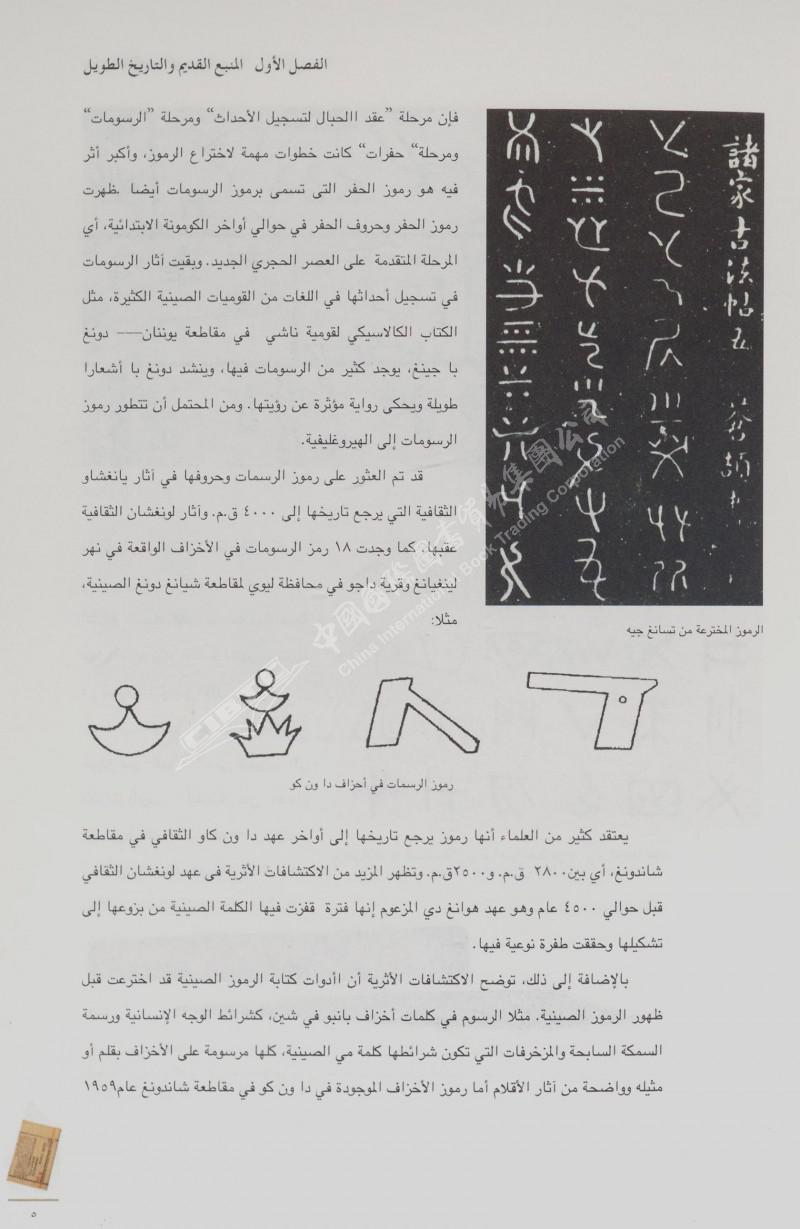 الفصل الأول المنبع القديم والتاريخ الطويل
فإن مرحلة ”عقد االحبال لتسجيل الأحداث“ ومرحلة ”الرسومات“
ومرحلة“ حفرات“ كانت خطوات مهمة لاختراع الرموز، وأكبر أثر
فيه هو رموز الحفر التى تسمى برموز الرسومات أيضا .ظهرت
رموز الحفر وحروف الحفر في حوالي أواخر الكومونة الابتدائية، أي
المرحلة المتقدمة على العصر الحجري الجديد. وبقيت آثار الرسومات
في تسجيل أحداثها في اللغات من القوميات الصينية الكثيرة، مثل
الكتاب الكالاسيكي لقومية ناشي في مقاطعة يوننان—— دونغ
با جينغ، يوجد كثير من الرسومات فيها، وينشد دونغ با أشعارا
طويلة ويحكى رواية مؤثرة عن رؤيتها. ومن المحتمل أن تتطور رموز
الرسومات إلى الهيروغليفية.
قد تم العثور على رموز الرسمات وحروفها في آثار يانغشاو
الثقافية التي يرجع تاريخها إلى ٤٠٠٠ ق.م. وآثار لونغشان الثقافية
عقبها. كما وجدت ١٨ رمز الرسومات في الأخزاف الواقعة في نهر
لينغيانغ وقرية داجو في محافظة ليوي لمقاطعة شيانغ دونغ الصينية،
مثلا:
諸家古法帖五 蒼頡
الرموز المخترعة من تسانغ جيه
رموز الرسمات في أحزاف دا ون كو
يعتقد كثير من العلماء أنها رموز يرجع تاريخها إلى أواخر عهد دا ون كاو الثقافي في مقاطعة
شاندونغ، أي بين٢٨٠٠ ق.م. و٢٥٠٠ق.م. وتظهر المزيد من الاكتشافات الأثرية فى عهد لونغشان الثقافي
قبل حوالي ٤٥٠٠ عام وهو عهد هوانغ دي المزعوم إنها فترة قفزت فيها الكلمة الصينية من بزوعها إلى
تشكيلها وحققت طفرة نوعية فيها.
بالإضافة إلى ذلك، توضح الاكتشافات الأثرية أن اأدوات كتابة الرموز الصينية قد اخترعت قبل
ظهور الرموز الصينية. مثلا الرسوم في كلمات أخزاف بانبو في شين، كشرائط الوجه الإنسانية ورسمة
السمكة السابحة والمزخرفات التي تكون شرائطها كلمة مي الصينية، كلها مرسومة على الأخزاف بقلم أو
مثيله وواضحة من آثار الأقلام أما رموز الأخزاف الموجودة في دا ون كو في مقاطعة شاندونغ عام١٩٥٩
٥
中國國際圖書貿易集團公司
China International Book Trading Corporation
CIBTC